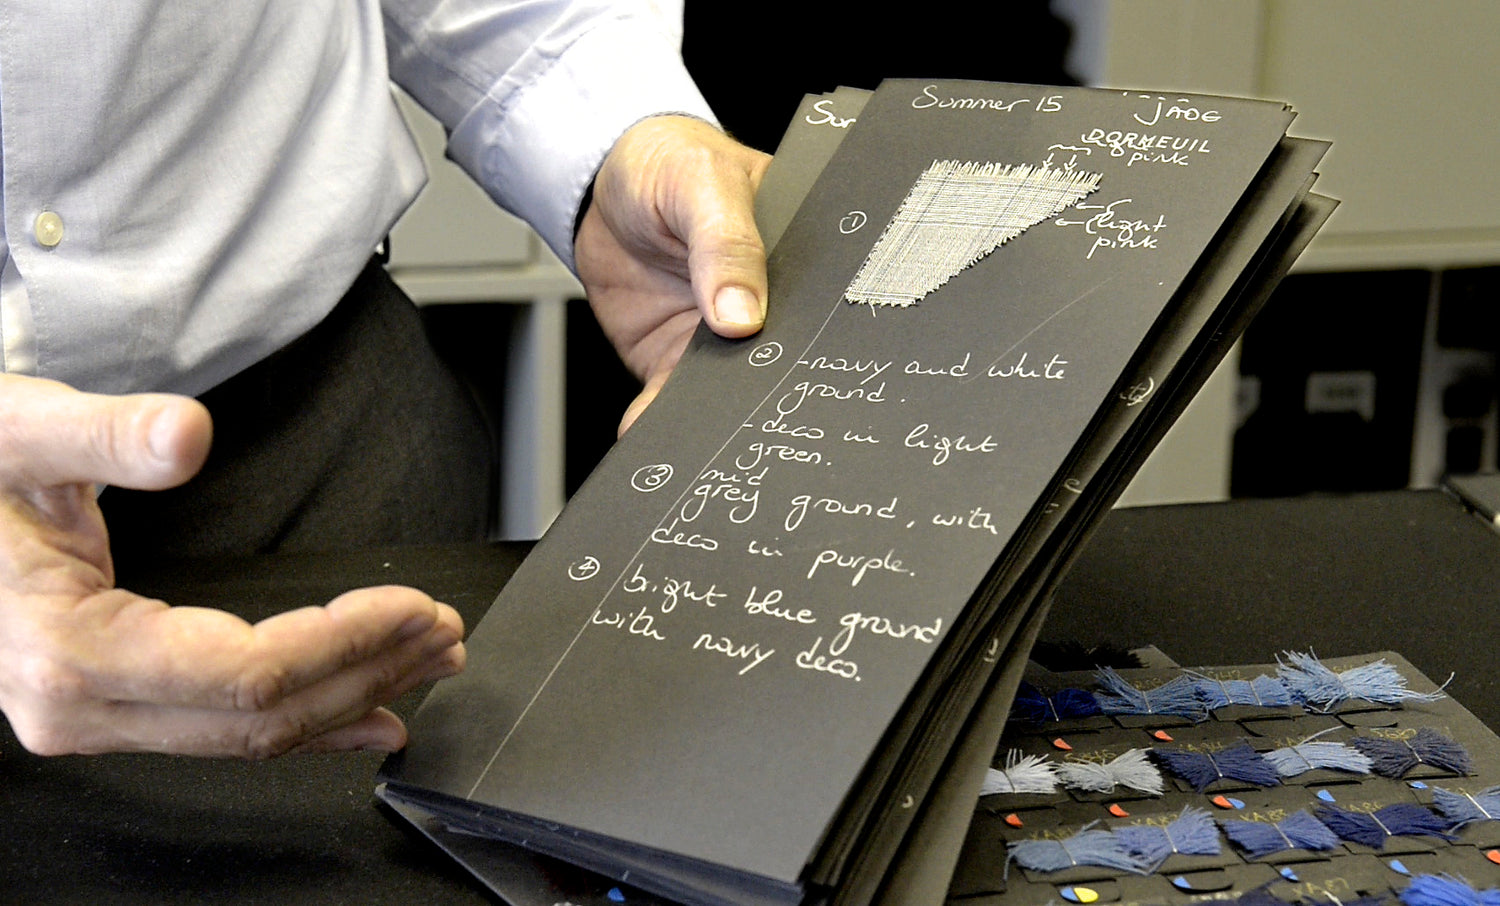 Summer 15 "JADE
DORMEUIL
light
pink
①
light
pink
② - navy and white
ground.
- deco in light
green.
③ mid
grey ground, with
deco in purple.
④ bright blue ground
with navy deco.